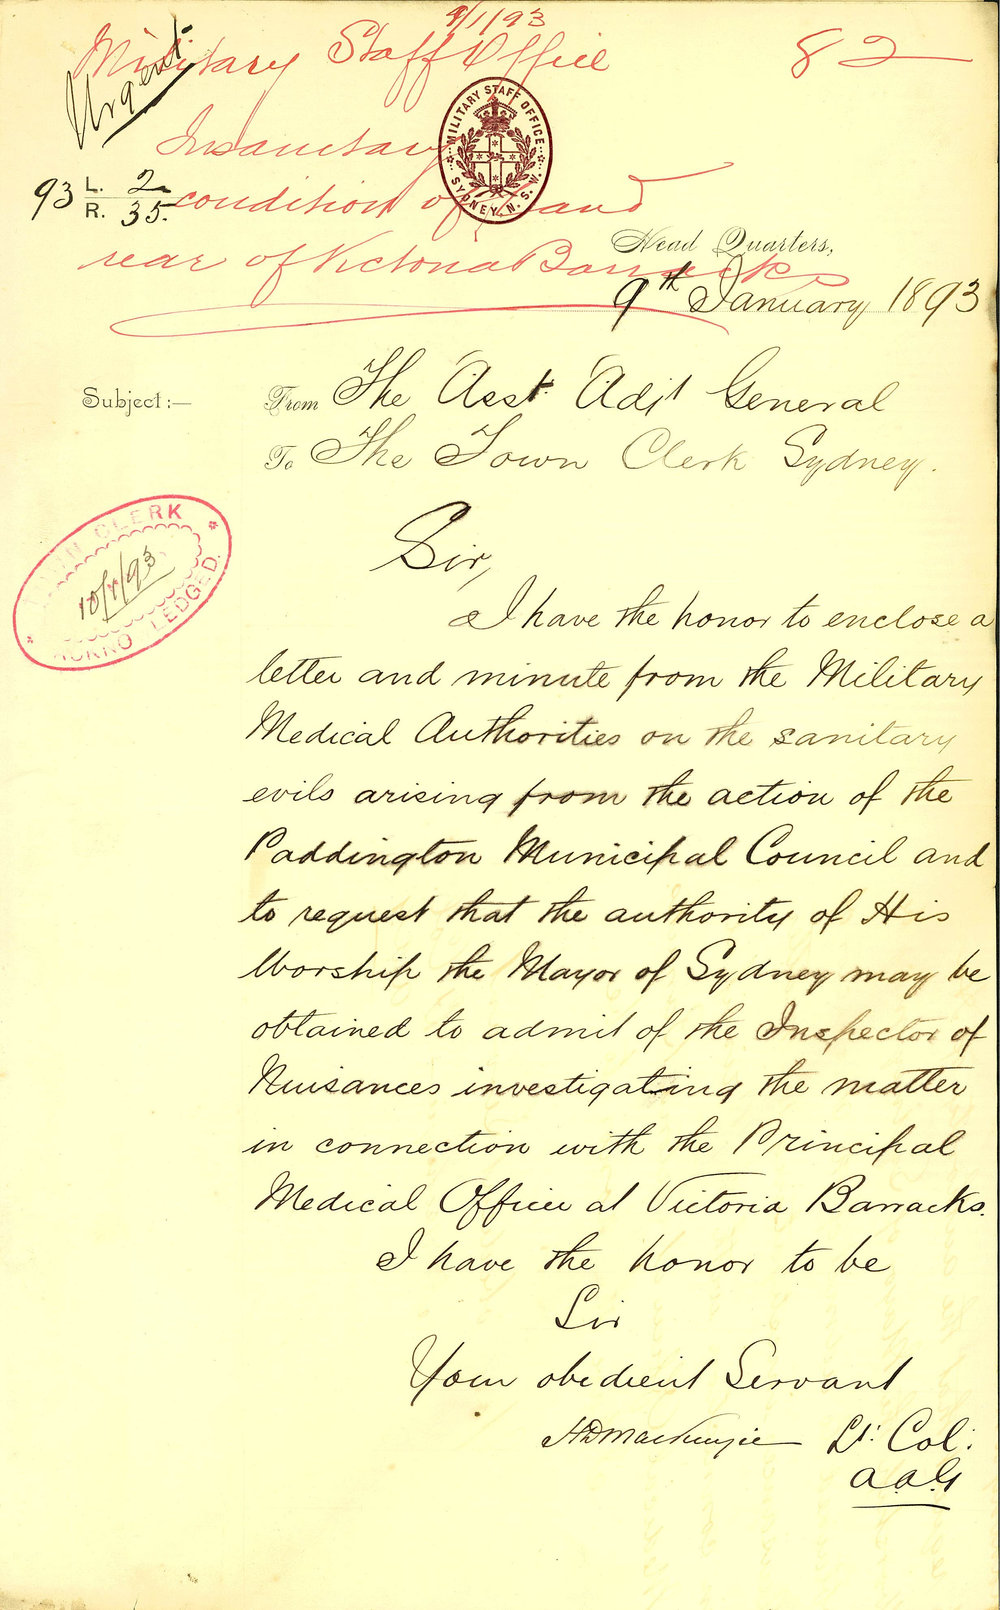 9/1/93
Military Staff Office
82
Urgent
Insanitary
MILITARY STAFF OFFICE
SYDNEY, N.S.W.
93 L. 2
R. 35.
condition of land
rear of Victoria Barracks
Head Quarters,
9th January 1893
Subject:—
From The Asst. Adjt General
To The Town Clerk Sydney.
TOWN CLERK
10/1/93
ACKNOWLEDGED.
Sir,
I have the honor to enclose a
letter and minute from the Military
Medical Authorities on the sanitary
evils arising from the action of the
Paddington Municipal Council and
to request that the authority of His
Worship the Mayor of Sydney may be
obtained to admit of the Inspector of
Nuisances investigating the matter
in connection with the Principal
Medical Officer at Victoria Barracks.
I have the honor to be
Sir
Your obedient Servant
HDMackenzie Lt: Col:
A.A.G